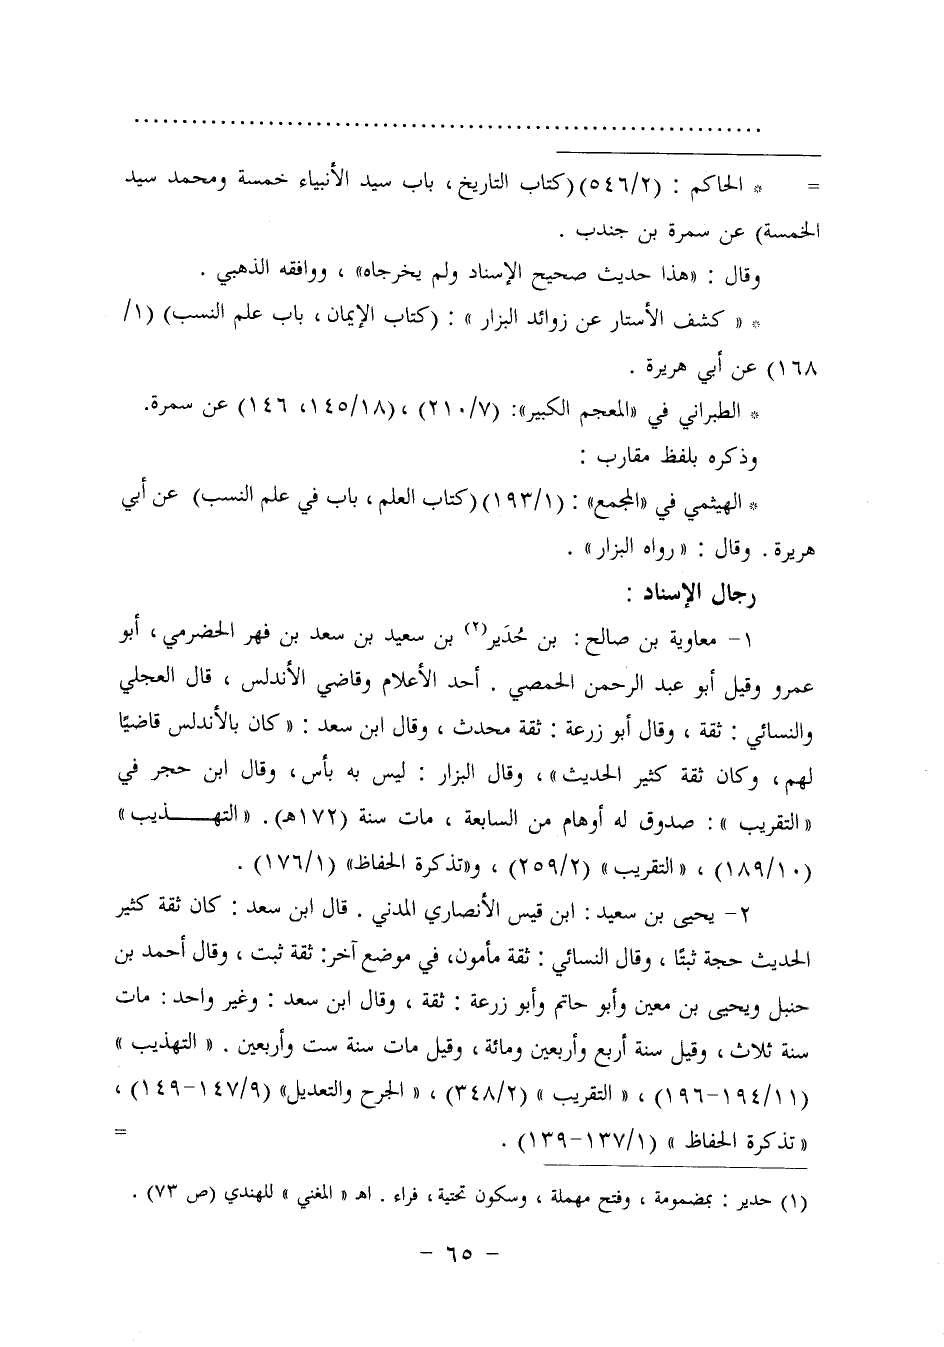 ..................................................................
= * الحاكم : (٥٤٦/٢) (كتاب التاريخ ، باب سيد الأنبياء خمسة ومحمد سيد
الخمسة) عن سمرة بن جندب .
وقال : «هذا حديث صحيح الإسناد ولم يخرجاه» ، ووافقه الذهبي .
* « كشف الأستار عن زوائد البزار » : (كتاب الإيمان ، باب علم النسب) (١/
١٦٨) عن أبي هريرة .
* الطبراني في «المعجم الكبير»: (٢١٠/٧) ، (١٤٥/١٨، ١٤٦) عن سمرة.
وذكره بلفظ مقارب :
* الهيثمي في «المجمع» : (١٩٣/١) (كتاب العلم ، باب في علم النسب) عن أبي
هريرة . وقال : « رواه البزار» .
رجال الإسناد :
١- معاوية بن صالح : بن حُدَير(٢) بن سعيد بن سعد بن فهر الحضرمي ، أبو
عمرو وقيل أبو عبد الرحمن الحمصي . أحد الأعلام وقاضي الأندلس ، قال العجلي
والنسائي : ثقة ، وقال أبو زرعة : ثقة محدث ، وقال ابن سعد : « كان بالأندلس قاضيًا
لهم ، وكان ثقة كثير الحديث» ، وقال البزار : ليس به بأس ، وقال ابن حجر في
«التقريب » : صدوق له أوهام من السابعة ، مات سنة (١٧٢هـ) . «التهـــذيب»
(١٨٩/١٠) ، « التقريب» (٢٥٩/٢) ، و«تذكرة الحفاظ» (١٧٦/١) .
٢- يحيى بن سعيد : ابن قيس الأنصاري المدني . قال ابن سعد : كان ثقة كثير
الحديث حجة ثبتًا ، وقال النسائي : ثقة مأمون، في موضع آخر: ثقة ثبت ، وقال أحمد بن
حنبل ويحيى بن معين وأبو حاتم وأبو زرعة : ثقة ، وقال ابن سعد : وغير واحد : مات
سنة ثلاث ، وقيل سنة أربع وأربعين ومائة ، وقيل مات سنة ست وأربعين . « التهذيب »
(١٩٤/١١-١٩٦) ، « التقريب » (٣٤٨/٢) ، « الجرح والتعديل» (١٤٧/٩-١٤٩) ،
« تذكرة الحفاظ » (١٣٧/١-١٣٩) . =
(١) حدير : بمضمومة ، وفتح مهملة ، وسكون تحتية ، فراء . اهـ « المغني » للهندي (ص ٧٣) .
- ٦٥ -